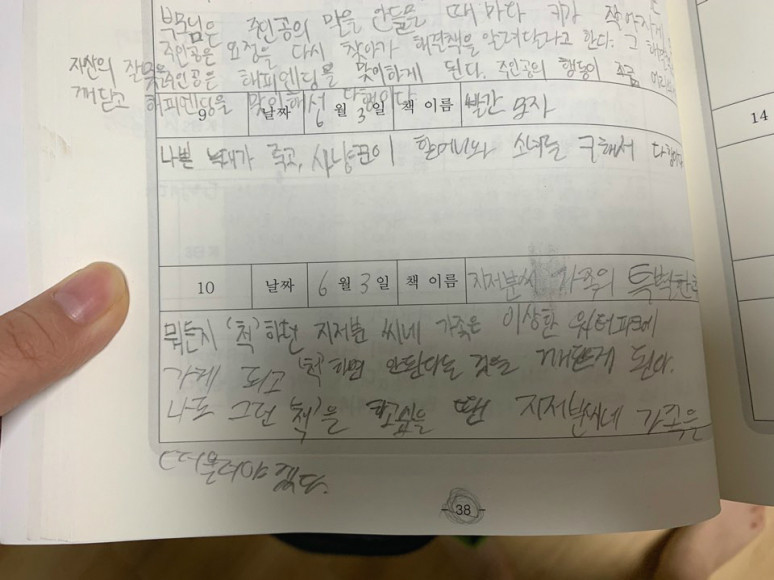 부모님은 주인공의 말을 안들을 때 마다 키가 작아지게
주인공은 요정을 다시 찾아가 해결책을 알려달라고 한다. 그
주인공은 해피엔딩을 맞이하게 된다. 주인공의 행동이 조금
자신의 잘못을
깨닫고 해피엔딩을 맞이해서 다행이다
9 날짜 6월 3일 책 이름 빨간 모자
나쁜 늑대가 죽고, 사냥꾼이 할머니와 소녀를 구해서
10 날짜 6월 3일 책 이름 지저분씨 가족의 특별한
뭐든지 '척'하던 지저분 씨네 가족은 이상한 워터파크에
가게 되고 '척'하면 안된다는 것을 깨닫게 된다.
나도 그런 '척'을 하고싶을 땐 지저분씨네 가족을
떠올려야 겠다.
- 38 -
14